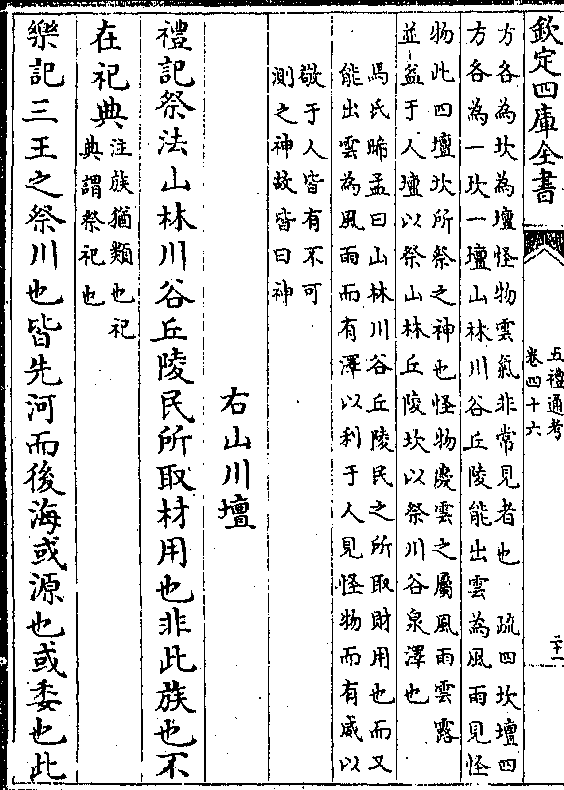 欽定四庫全書
五禮通考
卷四十六
二十一
方各為坎為壇怪物雲氣非常見者也　疏四坎壇四
方各為一坎一壇山林川谷丘陵能出雲為風雨見怪
物此四壇坎所祭之神也怪物慶雲之屬風雨雲露
並益于人壇以祭山林丘陵坎以祭川谷泉澤也
馬氏晞孟曰山林川谷丘陵民之所取財用也而又
能出雲為風雨而有澤以利于人見怪物而有威以
敬于人皆有不可
測之神故皆曰神
右山川壇
禮記祭法山林川谷丘陵民所取材用也非此族也不
在祀典注族猶類也祀
典謂祭祀也
樂記三王之祭川也皆先河而後海或源也或委也此